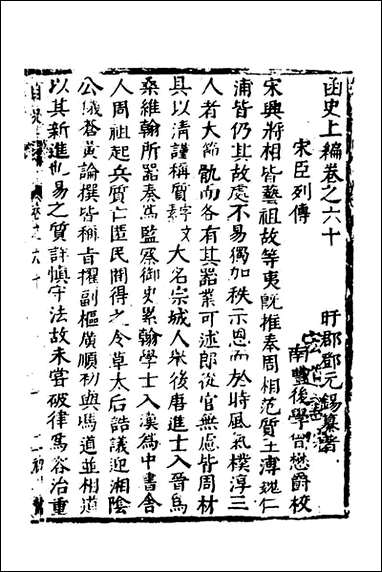 函史上編卷之六十
盱郡鄧元錫纂著
南豐後學 懋爵校
宋臣列傳
宋興將相皆藝祖故等夷既推奏周相范質王溥魏仁
浦皆仍其故處不易獨加秩示恩而於時風氣樸淳三
人者大節骫而各有其器業可述郎從官無慮皆周材
具以清謹稱質 大名宗城人米後唐進士入晉為
桑維翰所器奏為監察御史累翰學士入漢為中書舍
人周祖起兵質亡匿民間得之令草太后誥議迎湘陰
公儀蒼黃論撰皆稱旨擢副樞廣順初與馮道並相道
以其新進也易之質詳慎守法故未嘗破律為容治重